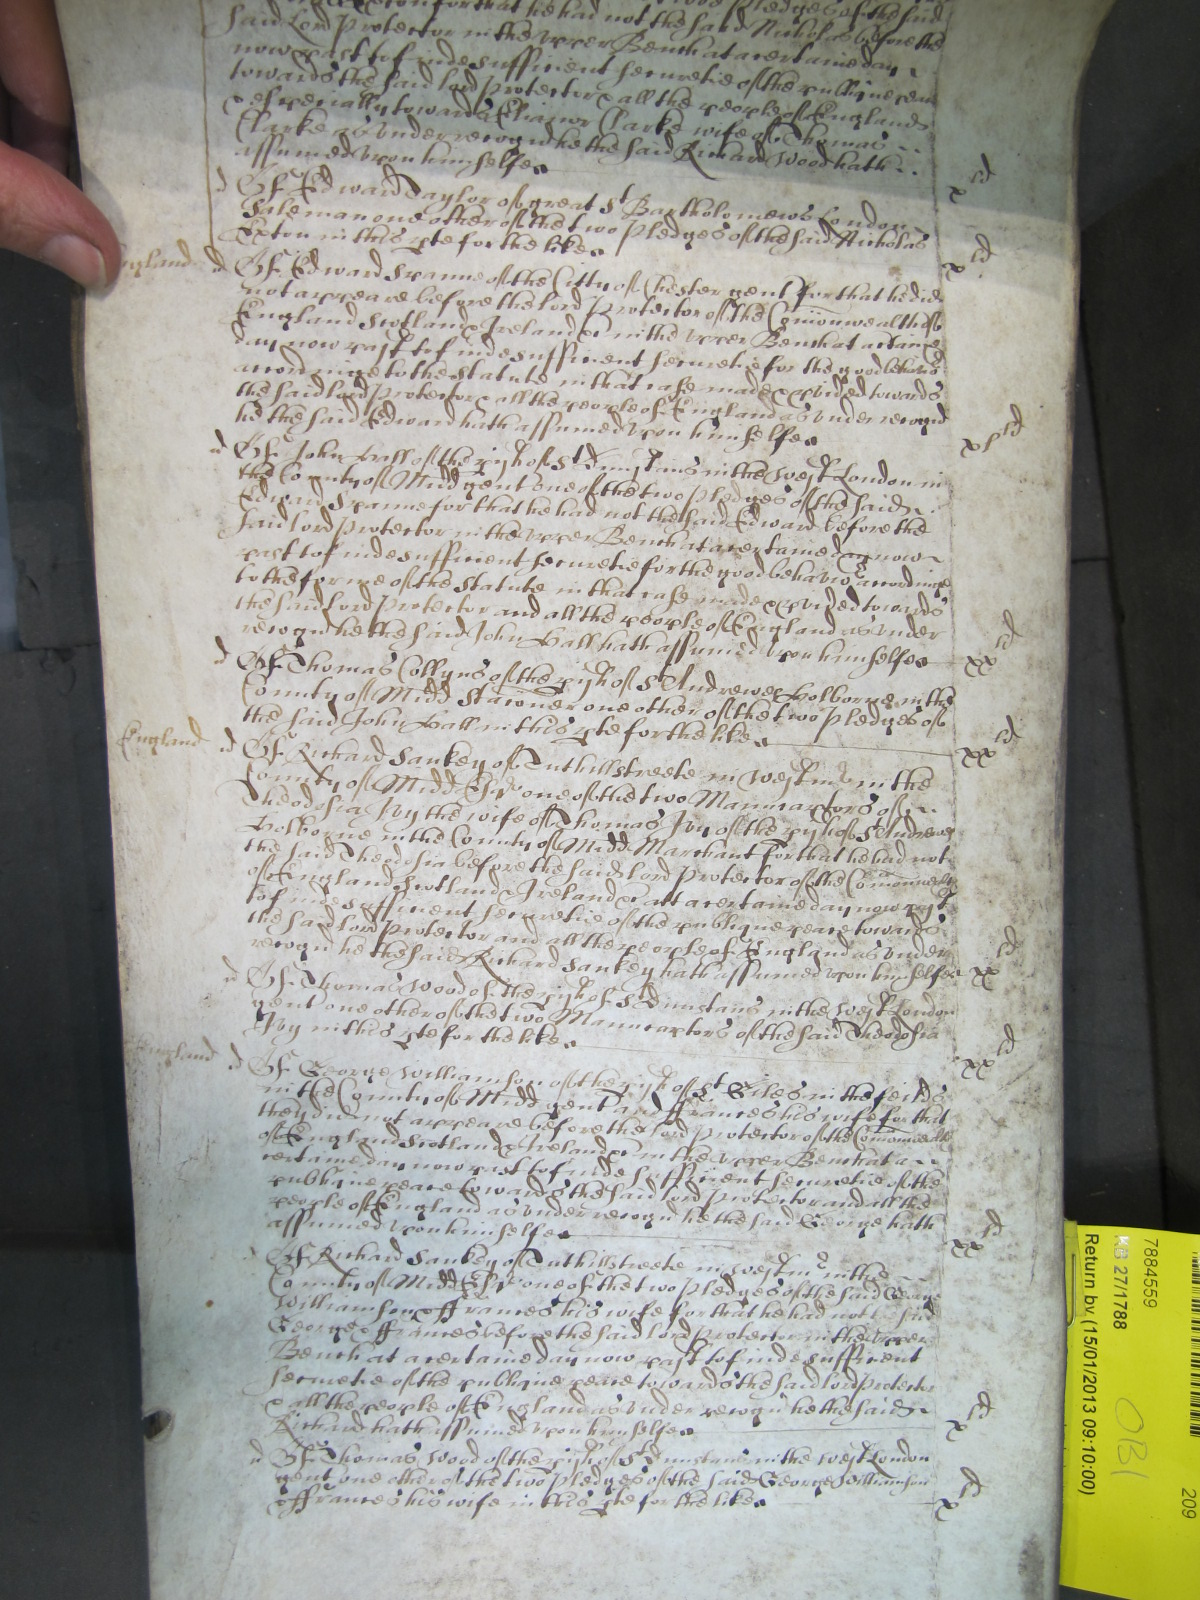 said Lord Protector in the upper Bench at a certaine day
now past to finde sufficient securetie of the publique peace
towards the said lord Protector & all the people of England
& especially towards Elianor Clarke wife of Thomas
Clarke as under recogn he the said Richard Wood hath
assumed upon himselfe
x ld
Of Edward Taylor of great St Bartholomews London
Saleman one other of the two pledges of the said Nicholas
in this for the like
x ld
England
Of Edward Spanne of the Citty of Chester gent for that he did
not appeare before the lord Protector of the Comonwealth of
England Scotland & Ireland &c in the upper Bench at a certaine
day now past to finde sufficient securetie for the good behavior
accordinge to the Statute in that case made & provided towards
the said lord Protector & all the people of England as under recogn
he the said Edward hath assumed upon himselfe
xl ld
Of John Hall of the pish of St Dunstans in the West London in
the County of Midd gent one of the two pledges of the said
Edward Spanne for that he had not the said Edward before the
said lord Protector in the upper Bench at a certaine day now
past to finde sufficient securetie for the good behavior accordinge
to the forme of the Statute in that case made & provided towards
the said Lord Protector and all the people of England as under
recogn he the said John Hall hath assumed upon himselfe
xx ld
Of Thomas Collyns of the pish of St Andrewes Holborne in the
County of Midd one other of the two pledges of
the said John Hall in this pte for the like
xx ld
England
Of Richard Sankey of Tuthillstreete in Westmr in the
County of Midd Esqr one of the two Manucaptors of
Theodosia Ivy the wife of Thomas Ivy of the pish of St Andrewes
Holborne in the County of Midd Marchant for that he had not
the said Theodosia before the said lord Protector of the Comonwealth
of England Scotland & Ireland &c att a certaine day now past
to finde sufficient securetie of the publique peace towards
the said lord Protector and all the people of England as under
recogn he the said Richard Sankey hath assumed upon himselfe
xx ld
Of Thomas Wood of the pish of St Dunstans in the West London
gent one other of the two Manucaptors of the said Theodosia
Ivy in this pte for the like
xx ld
England
Of George Williamson of the pish of St Giles in the feilds
in the County of Midd gent and ffrances his wife for that
they did not appeare before the lord Protector of the Comonwealth
of England Scotland & Ireland &c in the upper Bench at a
certaine day now past to finde sufficient securetie of the
publique peace towards the said lord Protector and all the
people of England as under recogn he the said George hath
assumed upon himselfe
xx ld
Of Richard Sankey of Tuthillstreete in Westmr in the
County of Midd Esqr one of the two pledges of the said George
Williamson & ffrances his wife for that he had not the said
George & ffrances before the said lord Protector in the upper
Bench at a certaine day now past to finde sufficient
securetie of the publique peace towards the said lord Protector
& all the people of England as under recogn he the said
Richard hath assumed upon himselfe
x ld
Of Thomas Wood of the pish of St Dunstans in the West London
gent one other of the two pledges of the said George Williamson
& ffrances his wife in this pte for the like
x ld
7884559
KB 27/1788
Return by (15/01/2013 09:10:00)
OBI
209